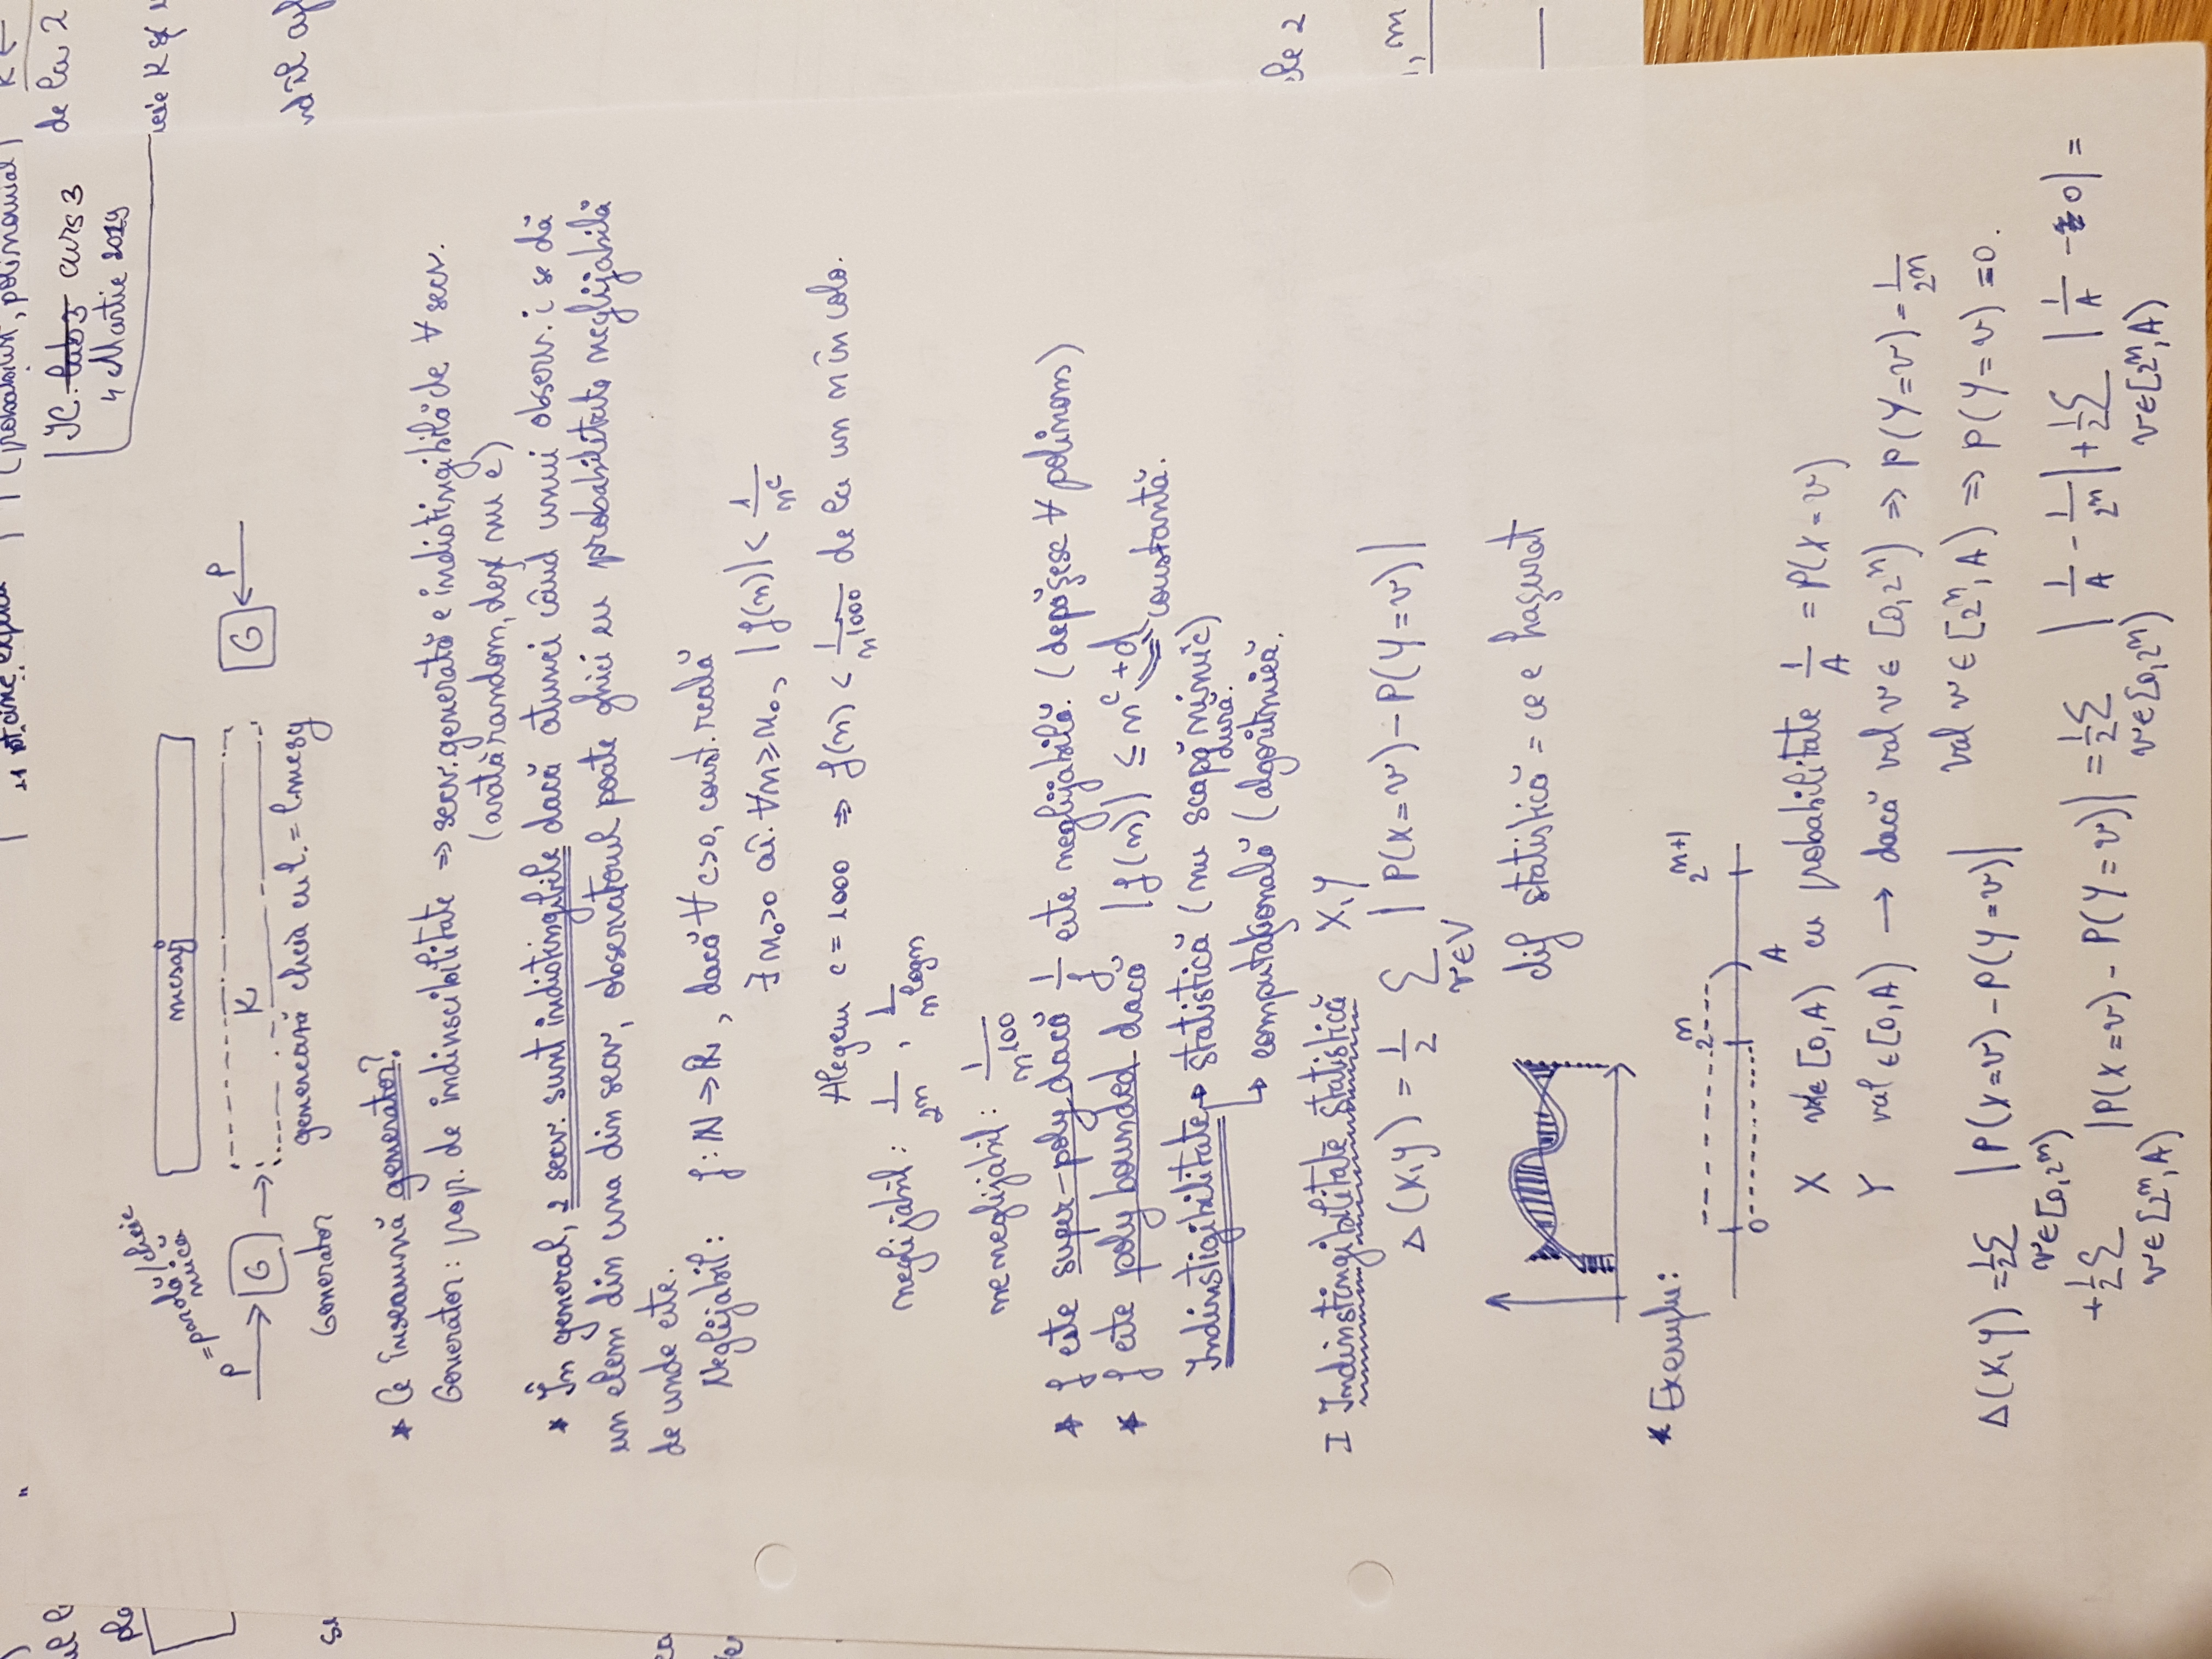 (probabilist, polinomial)
de la 2
IC. lab 3 curs 3
4 Martie 2019
P = parolă/cheie mică
mesaj
P → G → K G ← P
Generator
generează cheia cu l. = l.mesg
* Ce înseamnă generator?
Generator: prop. de indinscibilitate ⇒ secv. generată e indistingibilă de ∀ secv.
(arată random, deși nu e)
* În general, 2 secv. sunt indistingibile dacă atunci când unui observ. i se dă
un elem din una din secv, observatorul poate ghici cu probabilitate neglijabilă
de unde este.
Neglijabil: f: ℕ → ℝ, dacă ∀ c>0, const. reală
∃ n₀>0 aî. ∀n ≥ n₀, |f(n)| < 1/n^c
Alegem c = 1000 ⇒ f(n) < 1/n^1000 de la un n în colo.
neglijabil: 1/2^n, 1/n^logn
neneglijabil: 1/n^100
* f este super-poly dacă 1/f este neglijabilă. (depășesc ∀ polinom)
* f este poly bounded dacă |f(n)| ≤ n^c + d
constantă.
Indinstigibilitate → statistică (nu scapă nimic)
dură.
↳ computațională (algoritmică.
I Indinstingibilitate statistică X, Y
Δ(X,Y) = 1/2 Σ v∈V |P(X=v) - P(Y=v)|
dif statistică = ce e hașurat
* Exemplu:
0 2^n A 2^n+1
X v∈[0,A) cu probabilitate 1/A = P(X=v)
Y val ∈[0,A) → dacă val v∈[0,2^n) ⇒ P(Y=v) = 1/2^n
val v∈[2^n,A) ⇒ P(Y=v) = 0.
Δ(X,Y) = 1/2 Σ v∈[0,2^n) |P(X=v) - P(Y=v)|
+ 1/2 Σ v∈[2^n,A) |P(X=v) - P(Y=v)| = 1/2 Σ v∈[0,2^n) |1/A - 1/2^n| + 1/2 Σ v∈[2^n,A) |1/A - 0| =